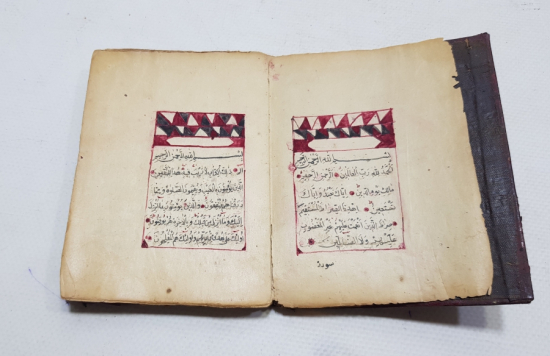 بسم الله الرحمن الرحيم
الحمد لله رب العالمين الرحمن الرحيم
ملك يوم الدين اياك نعبد واياك
نستعين اهدنا الصراط المستقيم
صراط الذين انعمت عليهم غير المغضوب
عليهم ولا الضالين
سورة
بسم الله الرحمن الرحيم
الم ذلك الكتاب لا ريب فيه هدى للمتقين
الذين يؤمنون بالغيب ويقيمون الصلوة ومما
رزقناهم ينفقون والذين يؤمنون بما انزل
اليك وما انزل من قبلك وبالاخرة هم يوقنون
اولئك على هدى من ربهم واولئك هم المفلحون